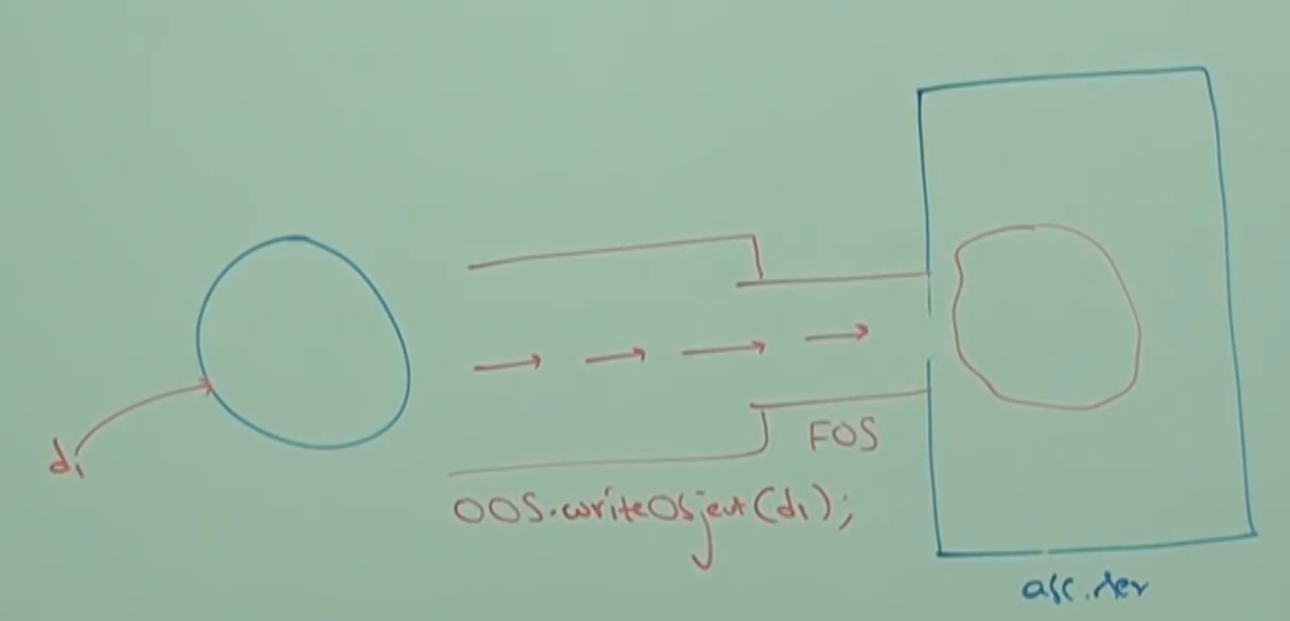 d1
FOS
OOS.writeObject(d1);
abc.ser